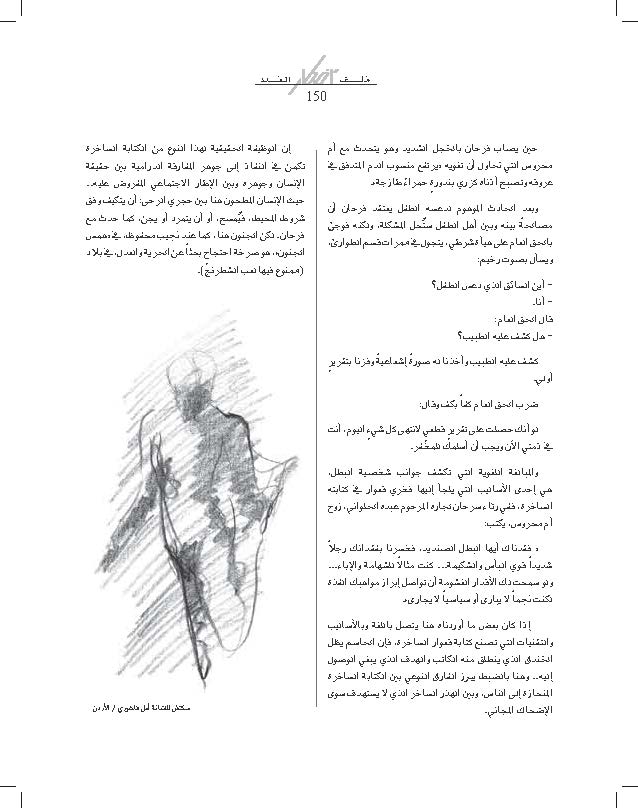 ملـــف العـــدد
150
حين يصاب فرحان بالخجل الشديد وهو يتحدث مع أم
محروس التي تحاول أن تغويه «يرتفع منسوب الدم المتدفق في
عروقه وتصبح أذناه كزري بندورةٍ حمراءَ طازجة».
وبعد الحادث الموهوم لدعسه الطفل يعتقد فرحان أن
مصالحةً بينه وبين أهل الطفل ستُحل المشكلة، ولكنه فوجئ
بالحق العام على هيأة شرطي، يتجول في ممرات قسم الطوارئ،
ويسأل بصوت رخيم:
- أين السائق الذي دعس الطفل؟
- أنا.
قال الحق العام:
- هل كشف عليه الطبيب؟
كشف عليه الطبيب وأخذنا له صورةً إشعاعيةً وفزنا بتقريرٍ
أولي.
ضرب الحق العام كفاً بكف وقال:
لو أنك حصلت على تقرير قطعي لانتهى كل شيءٍ اليوم، أنت
في ذمتي الآن ويجب أن أسلمك للمخفر.
والمبالغة اللغوية التي تكشف جوانب شخصية البطل،
هي إحدى الأساليب التي يلجأ إليها فخري قعوار في كتابته
الساخرة، ففي رثاء سرحان لجاره المرحوم عبده الحلواني، زوج
أم محروس، يكتب:
« فقدناك أيها البطل الصنديد، فخسرنا بفقدانك رجلاً
شديداً قوي البأس والشكيمة... كنت مثالاً للشهامة والإباء...
ولو سمحت لك الأقدار الغشومة أن تواصل إبراز مواهبك الفذة
لكنت نجماً لا يبارى أو سياسياً لا يجارى»
إذا كان بعض ما أوردناه هنا يتصل باللغة وبالأساليب
والتقنيات التي تصنع كتابة قعوار الساخرة، فإن الحاسم يظل
الخندق الذي ينطلق منه الكاتب والهدف الذي يبغي الوصول
إليه.. وهنا بالضبط يبرز الفارق النوعي بين الكتابة الساخرة
المنحازة إلى الناس، وبين الهذر الساخر الذي لا يستهدف سوى
الإضحاك المجاني.
إن الوظيفة الحقيقية لهذا النوع من الكتابة الساخرة
تكمن في النفاذ إلى جوهر المفارقة الدرامية بين حقيقة
الإنسان وجوهره وبين الإطار الاجتماعي المفروض عليه..
حيث الإنسان المطحون هنا بين حجري الرحى: أن يتكيف وفق
شروط المحيط، فيُمسخ، أو أن يتمرد أو يجن، كما حدث مع
فرحان. لكن الجنون هنا، كما عند نجيب محفوظ، في «همس
الجنون»، هو صرخة احتجاج بحثاً عن الحرية والعدل، في بلاد
(ممنوع فيها لعب الشطرنج).
سكتش للفنانة أمل / الأردن